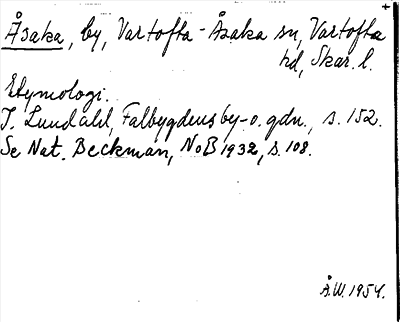 Åsaka, by, Vartofta-Åsaka sn, Vartofta
hd, Skar. l.
Etymologi.
I. Lundahl, Falbygdens by- o. gdn., s. 152.
Se Nat. Beckman, NoB 1932, s. 108.
Å.W. 1954.